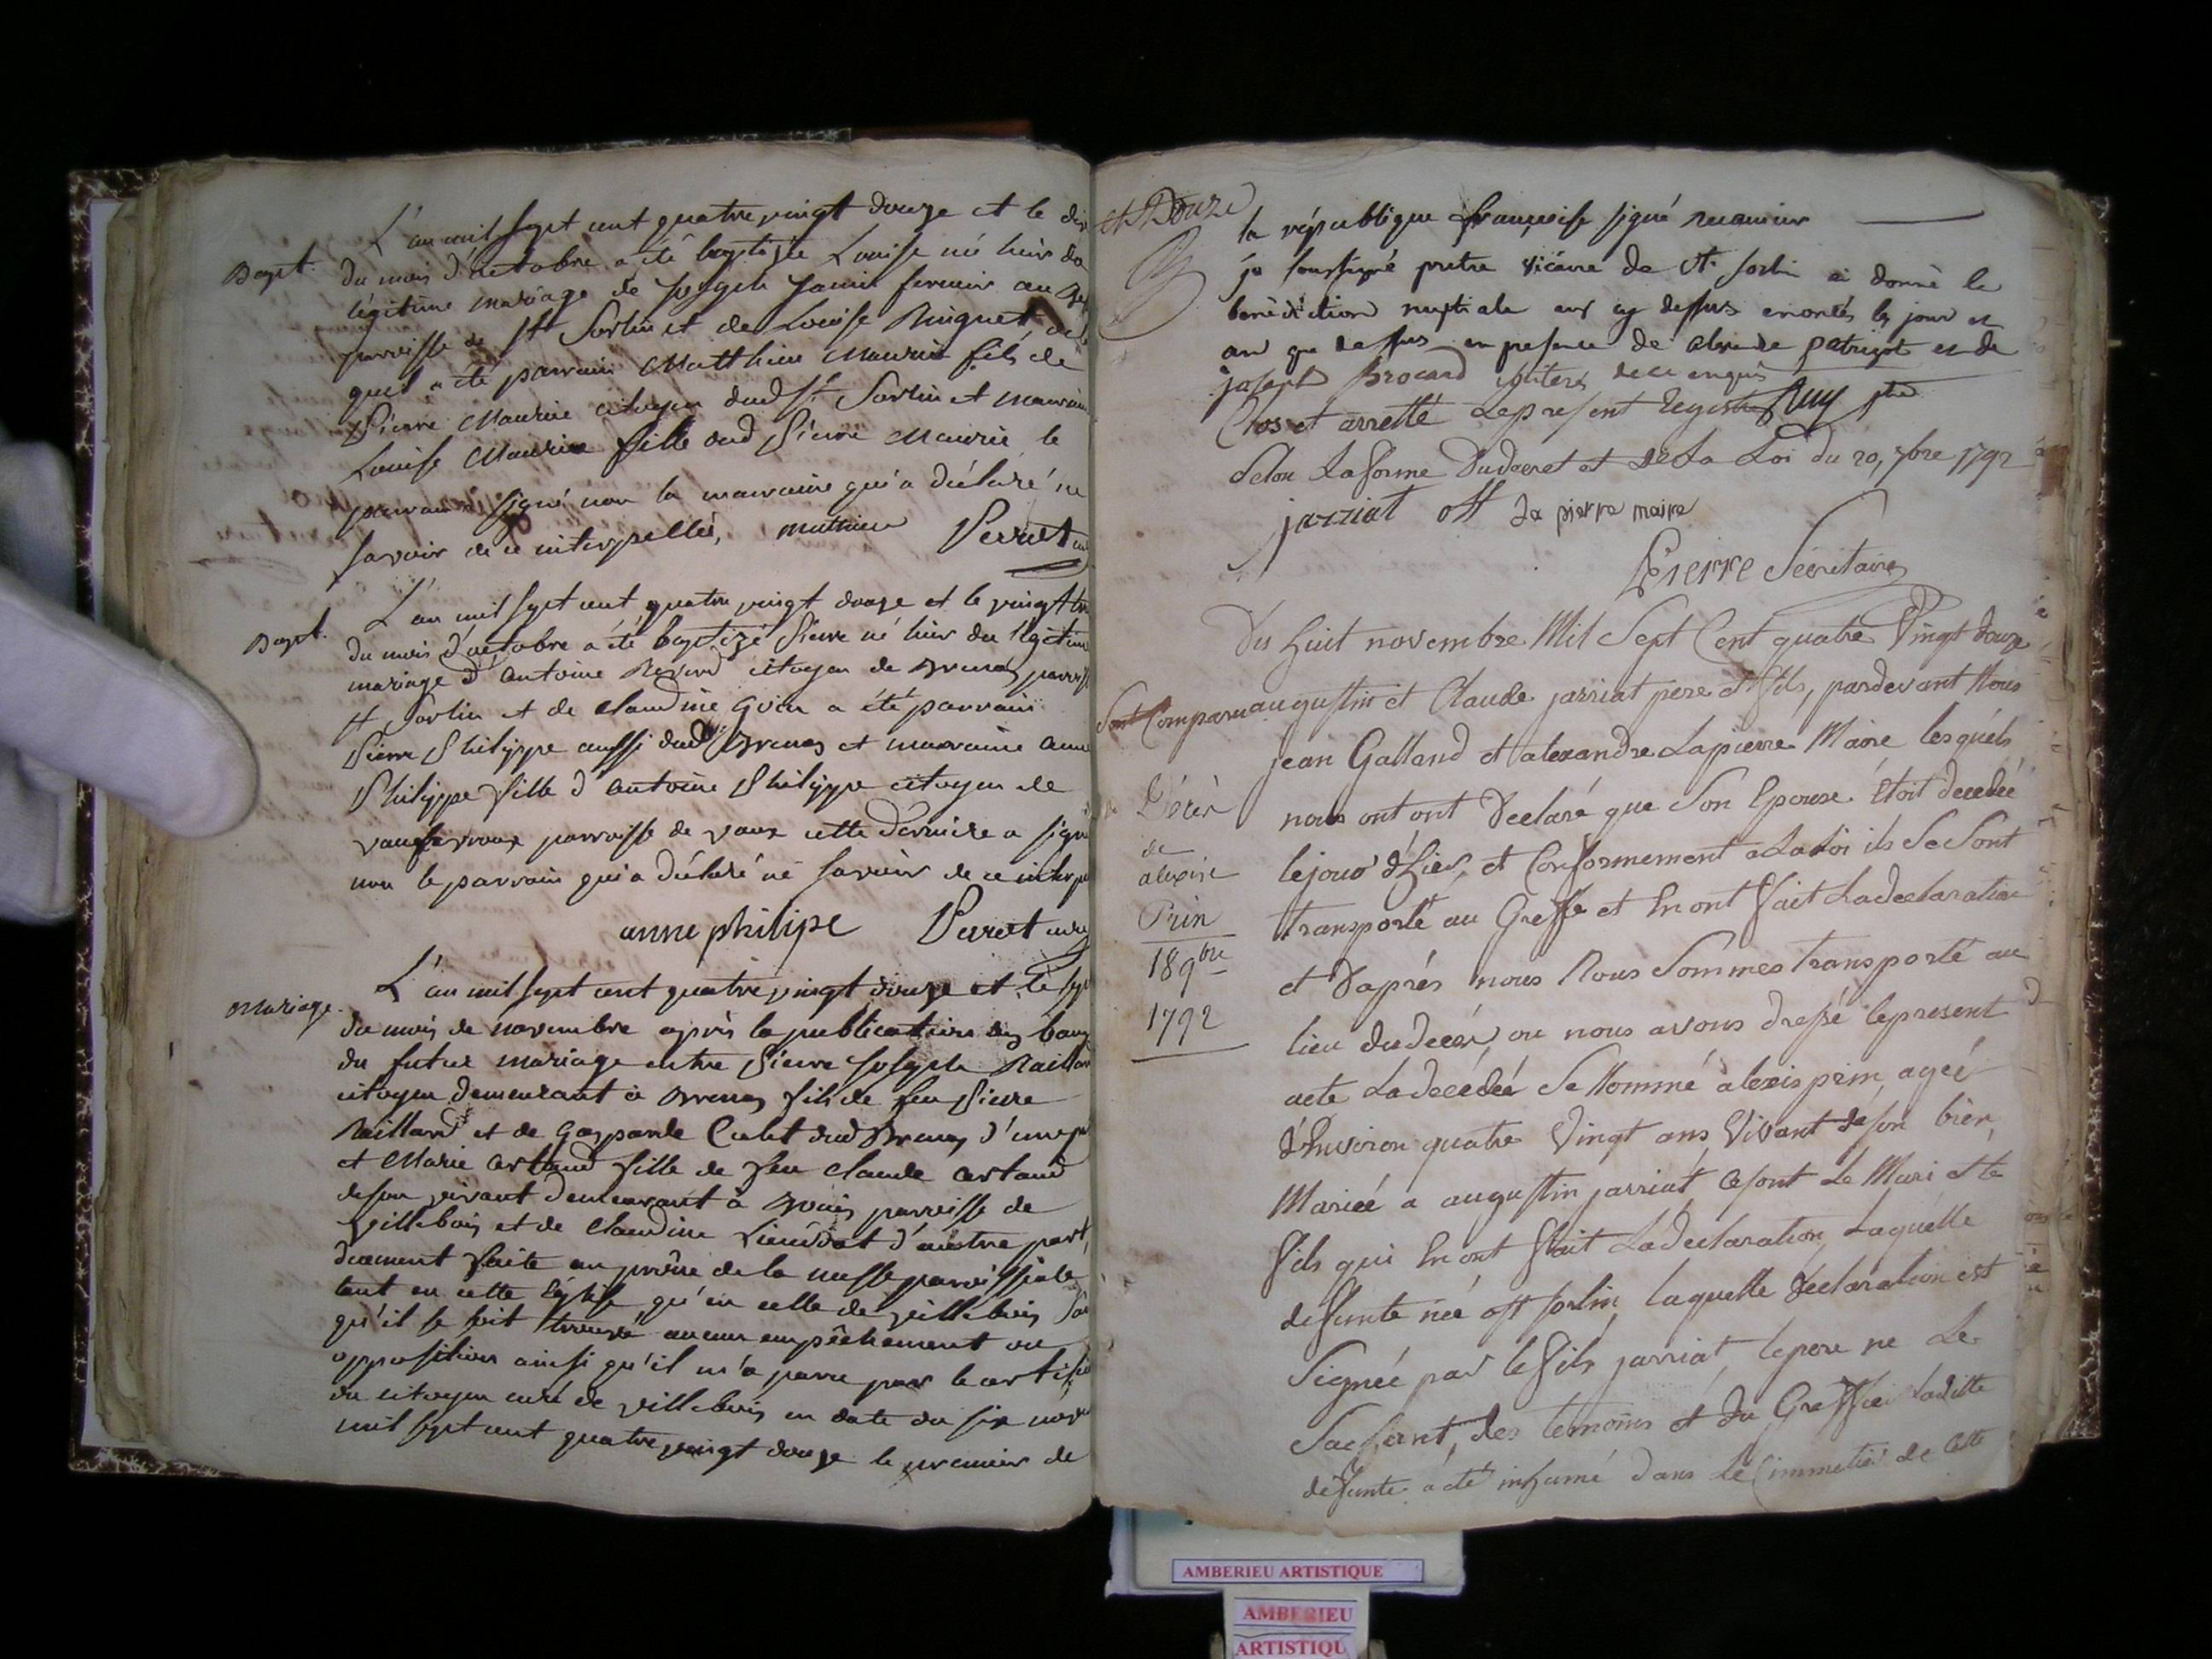 L'an mil sept cent quatre vingt douze et le dix
Bapt. du mois d'octobre a été baptisée Louise né hier du
légitime mariage de Joseph Jamin fermier au
parroisse de St Sorlin et de Louise Ringuet
quel a été parrain Matthieu Maurin fils de
Pierre Maurin citoyen dud St Sorlin et marraine
Louise Maurin fille dud Pierre Maurin le
parrain signé non la marraine qui a déclaré ne
savoir de ce interpellée, mathieu Perret
L'an mil sept cent quatre vingt douze et le vingt
Bapt. du mois d'octobre a été baptizé Pierre né hier du légitime
mariage d'Antoine citoyen de
St Sorlin et de Claudine a été parrain
Pierre Philippe aussi dud et marraine Anne
Philippe fille d'Antoine Philippe citoyen de
parroisse de Vaux cette dernière a signé
non le parrain qui a déclaré ne savoir de ce interpe
anne philipe Perret curé
L'an mil sept cent quatre vingt douze et le sept
Mariage. du mois de novembre après la publication des bans
du futur mariage entre Pierre Joseph Raillard
citoyen demeurant à fils de feu Pierre
Raillard et de Gasparde dud d'une part
et Marie Artaud fille de feu Claude Artaud
de son vivant demeurant à parroisse de
Villebois et de Claudine d'autre part,
duement faite au prône de la messe paroissiale
tant en cette Eglise qu'en celle de Villebois sans
qu'il se soit trouvé aucun empêchement ou
opposition ainsi qu'il m'a paru par le certificat
du citoyen curé de Villebois en date du six nov
mil sept cent quatre vingt douze le premier de
et Douze
la république françoise signé
je soussigné pretre vicaire de St Sorlin ai donné la
bénédiction nuptiale aux cy dessus énoncés les jour et
an que dessus en presence de et de
joseph Brocard illiterés de ce enquis
Clos et arretté Le present Registre ptre
Selon La forme Du decret et de La Loi du 20, 7bre 1792
jarriat off la pierre maire
LPierre Sécretaire
Du huit novembre Mil Sept Cent quatre Vingt Douze
Sont Comparu augustin et Claude jarriat pere et fils, pardevant Nous
jean Galland et alexandre Lapierre Maire lesquéls
nous ont ont Declaré que Son Epouse étoit decedée
le jour d'hier, et Conformement a La Loi ils Se Sont
transporté au Greffe et En ont fait La declaration
et D'aprés nous Nous Sommes transporté au
lieu du decés, ou nous avons dressé le present
acte La decédée Se Nommé alexis prin agée
d'Environ quatre Vingt ans Vivant de son bien,
Mariée a augustin jarriat, Ce sont Le Mari et le
fils qui En ont fait La declaration, Laquelle
defunte née a St Sorlin, laquelle déclaration est
Signée par le fils jarriat, le pere ne Le
Sachant, des temoins et du Greffier Laditte
defunte a été inhumé dans Le Cimmetier de Cette
Décès
de
alexis
Prin
18 9bre
1792
AMBERIEU ARTISTIQUE
AMBERIEU
ARTISTIQU